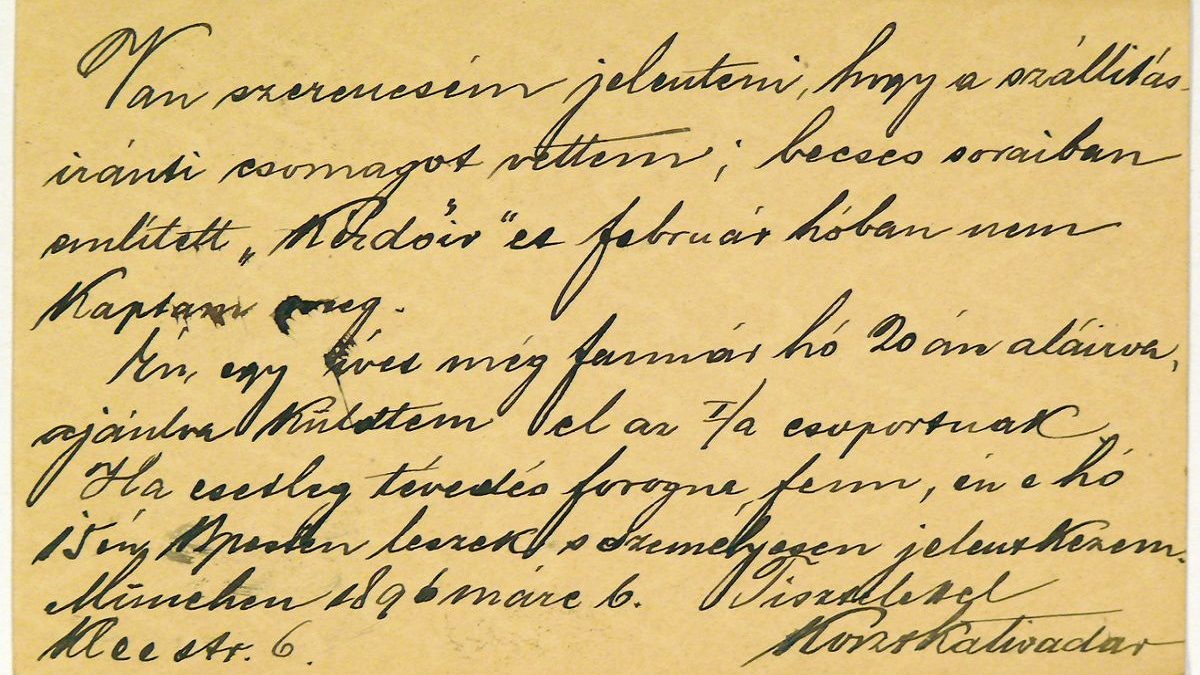 Van szerencsém jelenteni, hogy a szállitás-
iránti csomagot vettem; becses soraiban
említett „Kérdőív"et február hóban nem
Kaptam meg.
Én, egy íves még januàr hó 20án aláirva,
ajánlva Küldtem el az I/a csoportnak.
Ha esetleg tévedés forogne fenn, én e hó
15én Bpesten leszek s személyesen jelentkezem.
München 1896 márc 6. Tisztelettel
Kleestr. 6. Koszta